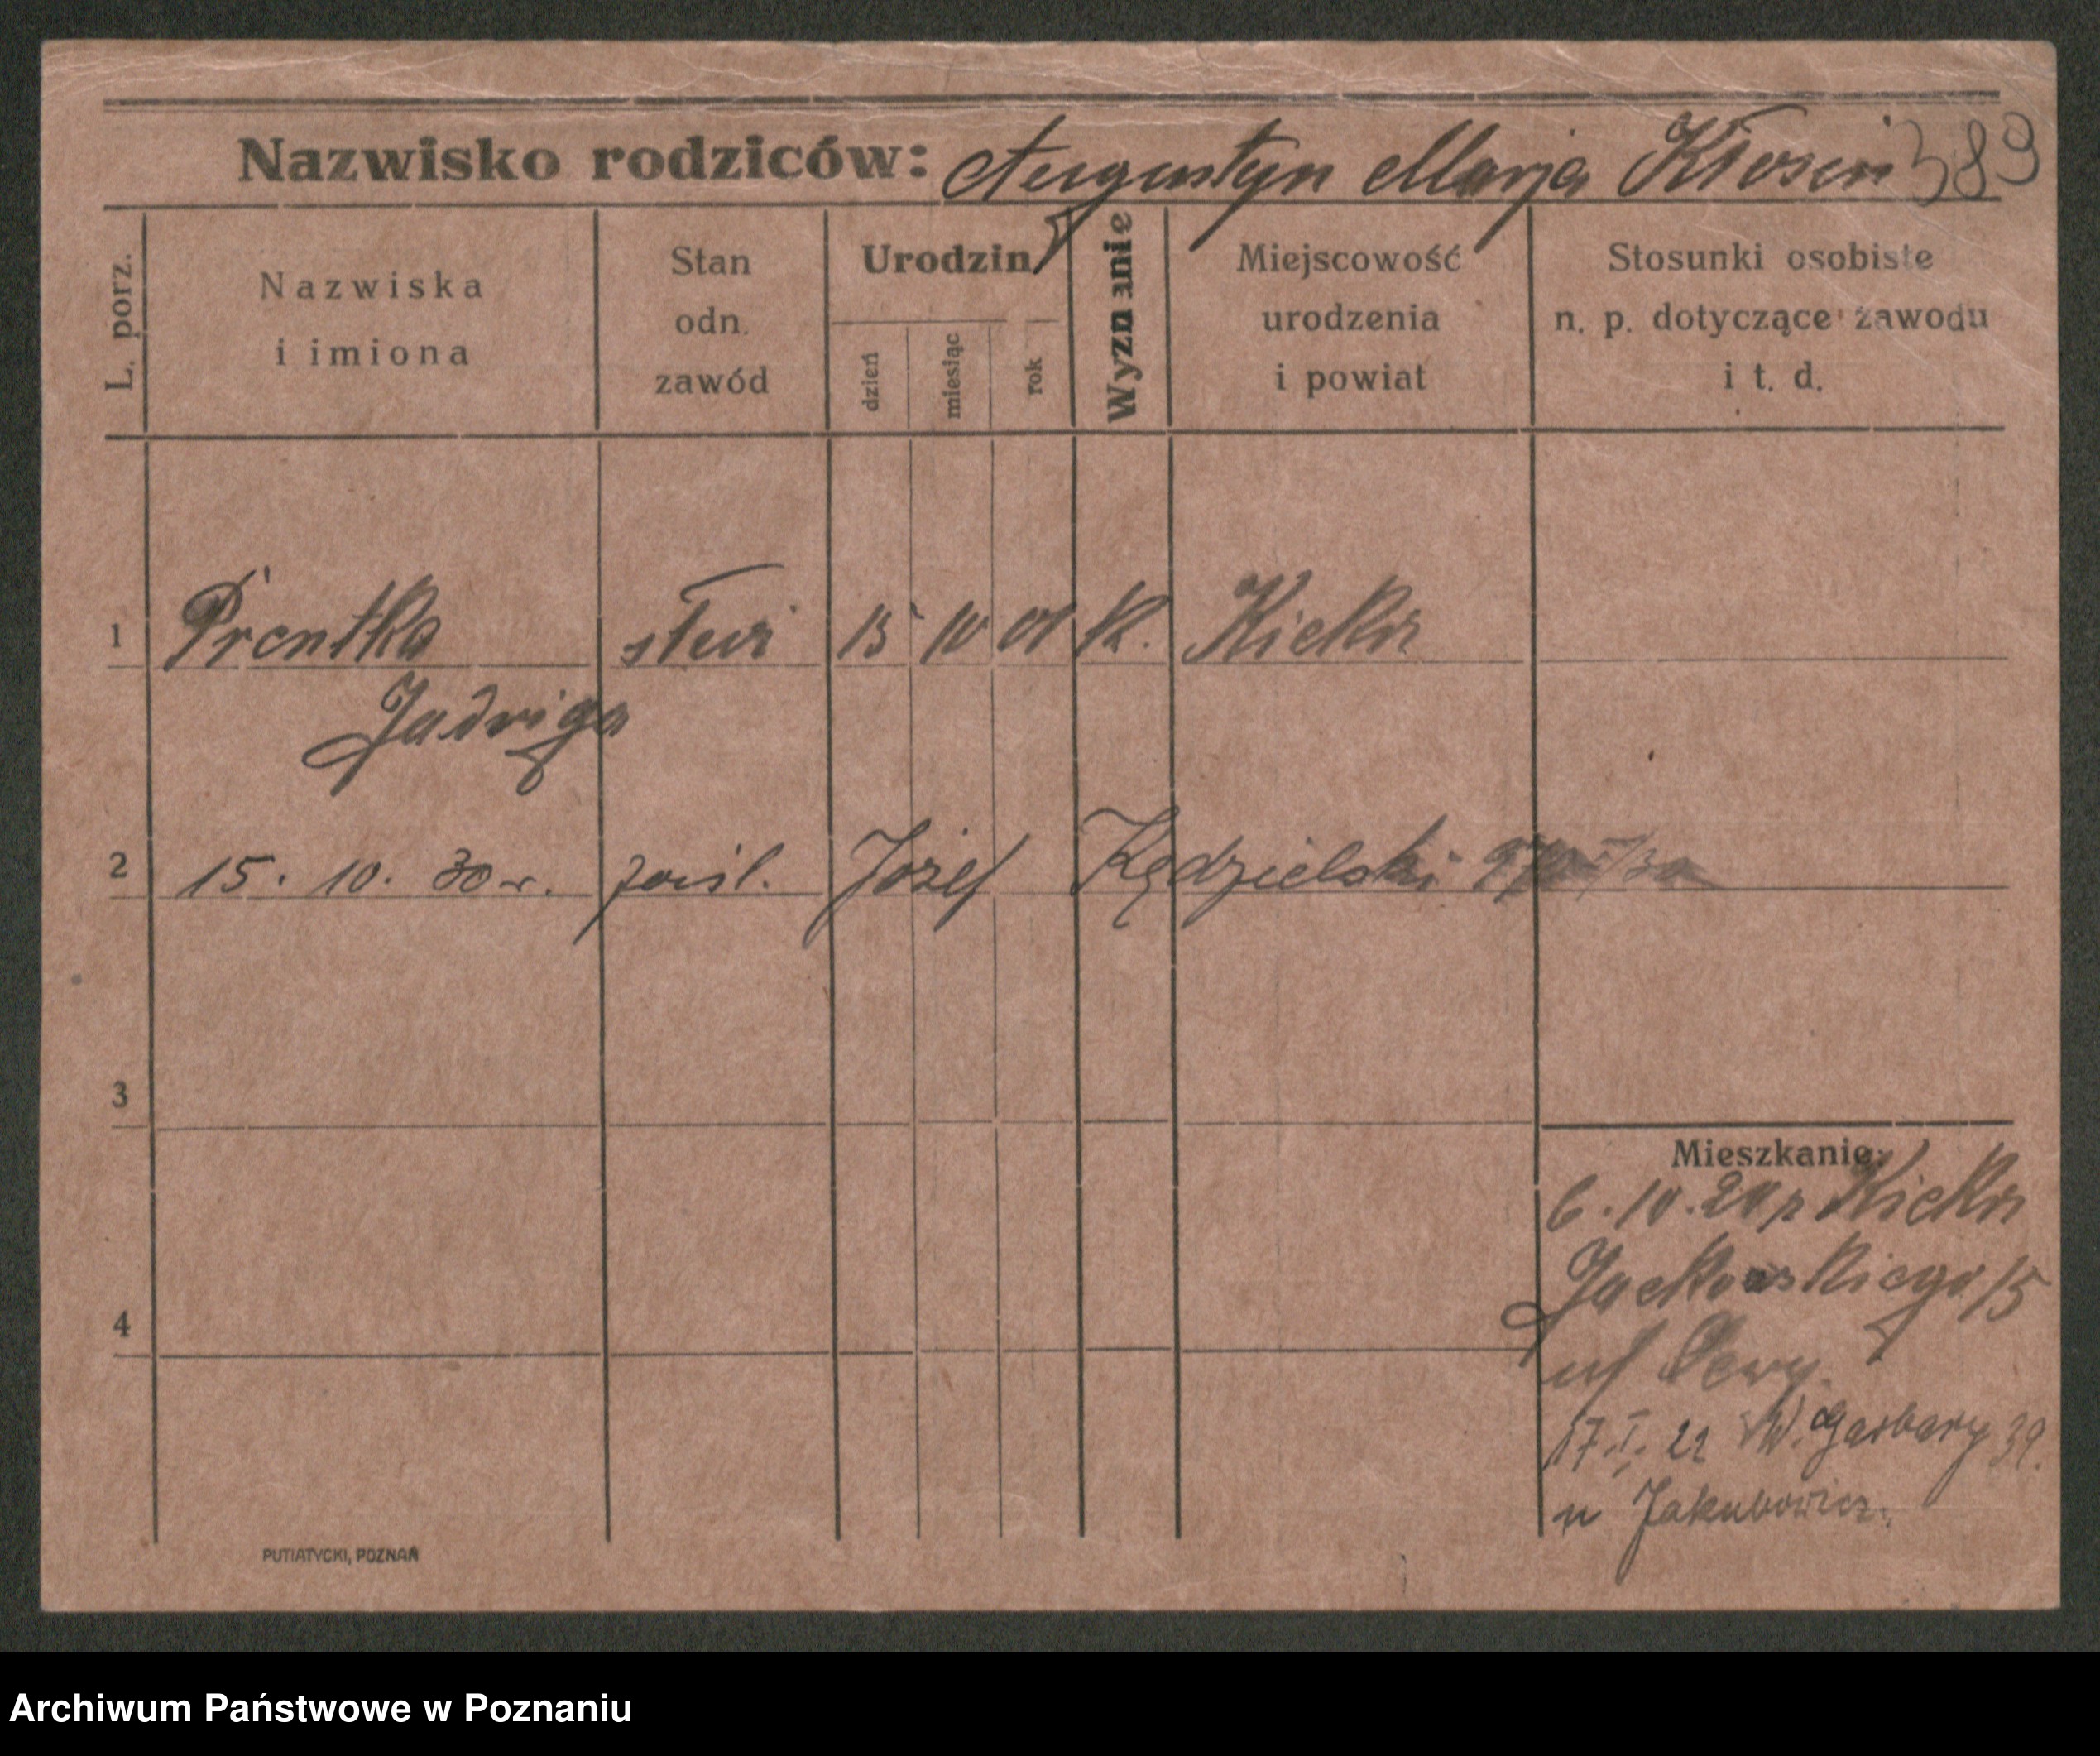 Nazwisko rodziców: Augustyn Marja 389
L. porz.
Nazwiska i imiona
Stan odn. zawód
Urodzin
dzień
miesiąc
rok
Wyznanie
Miejscowość urodzenia i powiat
Stosunki osobiste n. p. dotyczące zawodu i t. d.
1 Prentka 15 10 01 K. Kiekrz
Jadwiga
2 15. 10. 30 r. zaśl. Józef Kędzielski
3
4
Mieszkanie:
6. 10. 20 z Kiekrz
Jackowskiego 15
17. I. 21 W. Garbary 39.
u Jakubowicz.
PUTIATYCKI, POZNAŃ
Archiwum Państwowe w Poznaniu